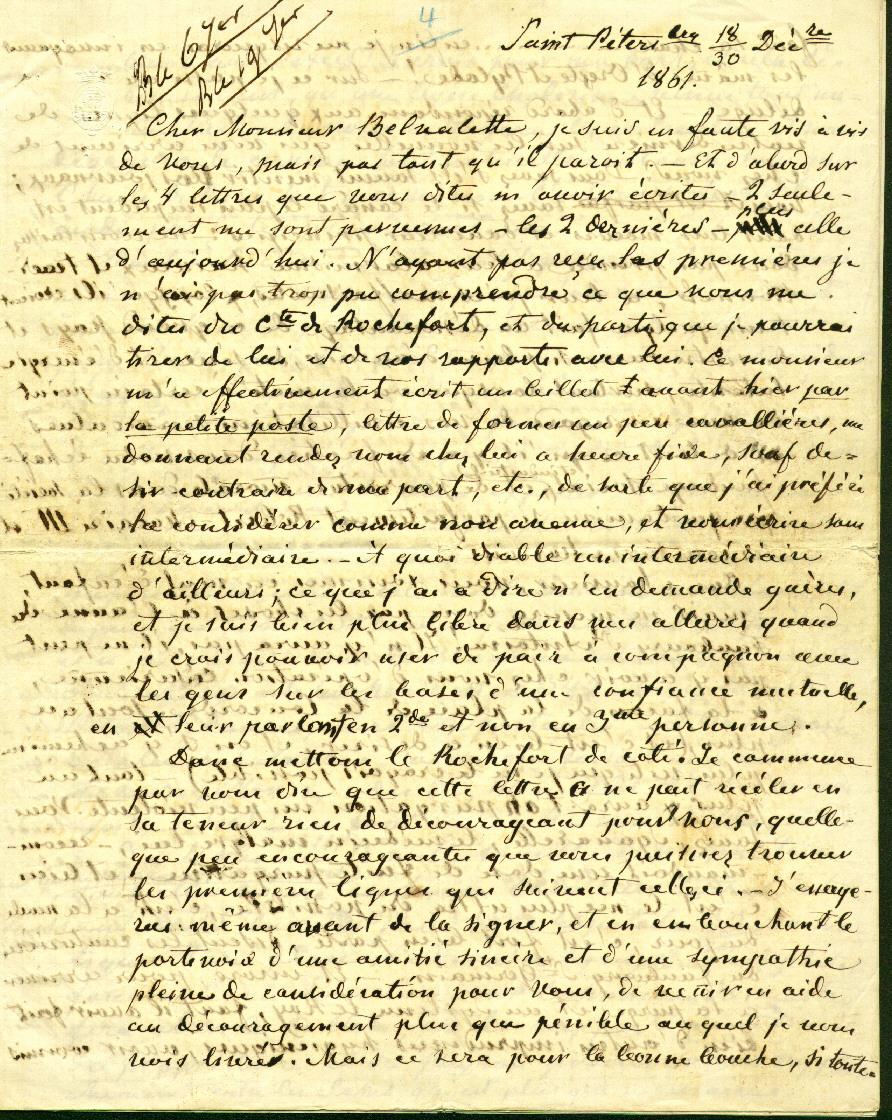 4
Ble 6 yer
Ble 19 yer
Saint Péters 18/30 Décre
1861.
Cher Monsieur Belvalette, je suis en faute vis à vis
de vous, mais pas tant qu'il paroit. — Et d'abord sur
les 4 lettres que vous dites m'avoir écrites — 2 seule-
ment me sont parvenues — les 2 dernières — plus celle
d'aujourd'hui. N'ayant pas reçu les premières je
n'ai pas trop pu comprendre ce que vous me
dites du Cte de Rochefort, et du parti que je pourrai
tirer de lui et de vos rapports avec lui. Ce monsieur
m'a effectivement écrit un billet avant hier par
la petite poste, lettre de formes un peu cavallières, me
donnant rendez vous chez lui a heure fixe, sauf dé-
sir contraire de ma part, etc., de sorte que j'ai préféré
la considérer comme non avenue, et vous écrire sans
intermédiaire. — A quoi diable un intermédiaire
d'ailleurs; ce que j'ai à dire n'en demande guères,
et je suis bien plus libre dans mes allures quand
je crois pouvoir user de pair à compagnon avec
les gens sur les bases d'une confiance mutuelle,
en leur parlant en 2de et non en 3me personne.
Donc mettons le Rochefort de côté. Je commence
par vous dire que cette lettre ne peut récéler en
sa teneur rien de décourageant pour Vous, quelle-
que peu encourageantes que vous puissiez trouver
les premières lignes qui suivent celleci. — J'essaye-
rai même avant de la signer, et en embouchant le
portevoix d'une amitié sincère et d'une sympathie
pleine de considération pour Vous, de venir en aide
au découragement plus que pénible auquel je vous
vois livré. Mais ce sera pour la bonne bouche, si toute-